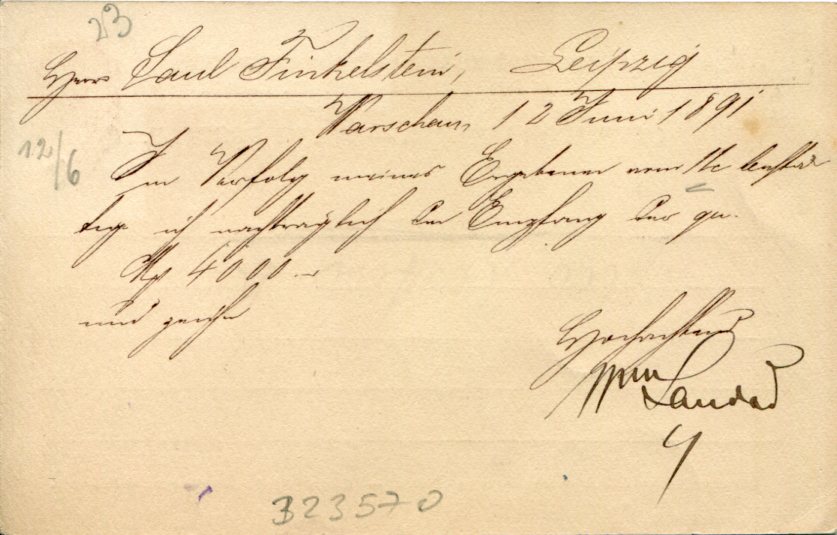 23
Herrn Saul Finkelstein, Leipzig
Warschau, 12 Juni 1891
12/6
Im Verfolg meines Ergebenen vom 11c bestä-
tige ich nachträglich den Empfang der qu.
4000.–
und zeichne
Hochachtend
Landau
323570